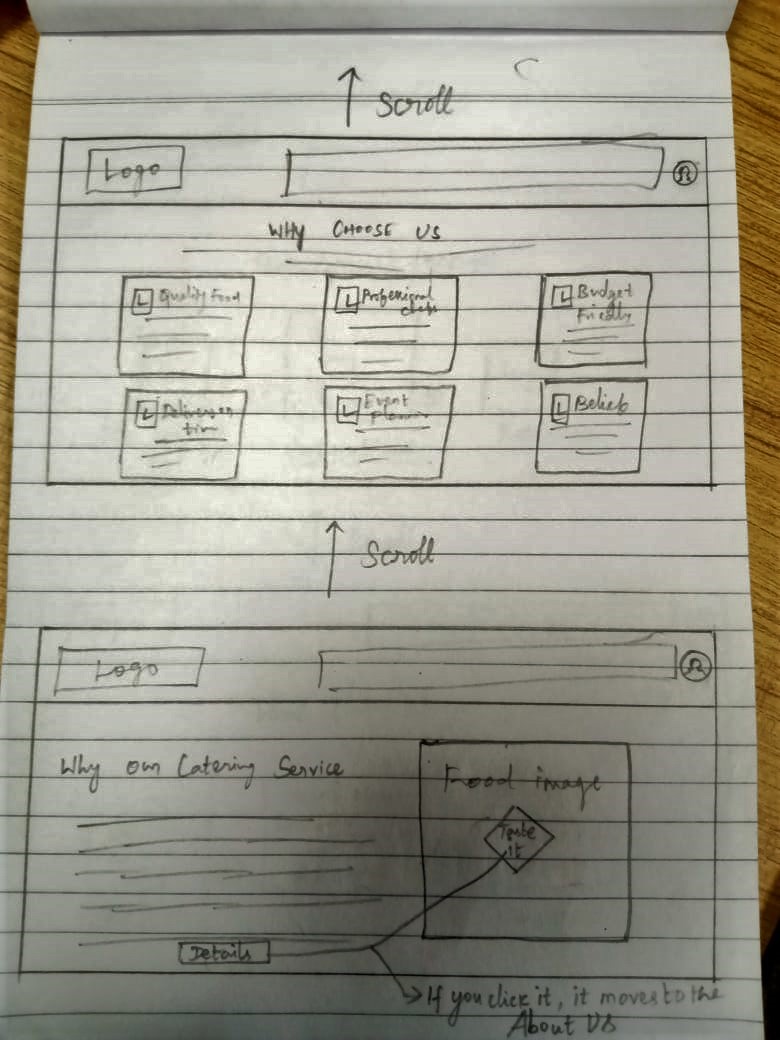 Scroll
Logo
WHY CHOOSE US
Quality Food
Professional
chefs
Budget
Friendly
Delivery on
time
Event
Belief
Scroll
Logo
Why our Catering Service
Food image
Taste
it
Details
If you click it, it moves to the
About US